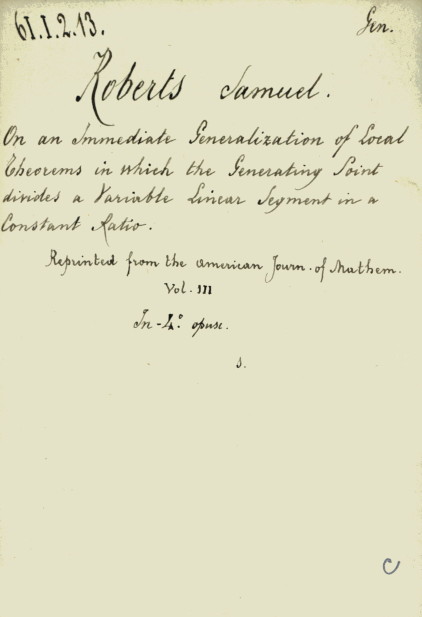 61.I.2.13.
Gen.
Roberts Samuel.
On an Immediate Generalization of Local
Theorems in which the Generating Point
divides a Variable Linear Segment in a
Constant Ratio.
Reprinted from the American Journ. of Mathem.
Vol. III
In-4.° opusc.
s.
C